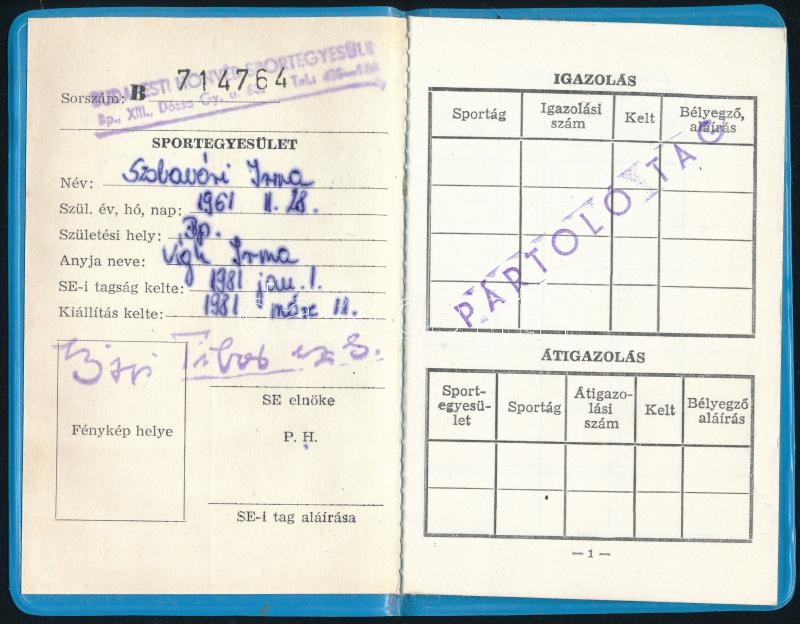 BUDAPESTI HONVÉD SPORTEGYESÜLET
Sorszám: B 714764
Bp., XIII., Dózsa Gy. u. 53. Tel.:
SPORTEGYESÜLET
Név: Szobavári Irma
Szül. év, hó, nap: 1961 11. 28.
Születési hely: Bp.
Anyja neve: Vigh Irma
SE-i tagság kelte: 1981 jan. 1.
Kiállítás kelte: 1981 márc 11.
Tibor
SE elnöke
Fénykép helye
P. H.
SE-i tag aláírása
IGAZOLÁS
Sportág Igazolási szám Kelt Bélyegző, aláírás
PÁRTOLÓ TAG
ÁTIGAZOLÁS
Sport-egyesü-let Sportág Átigazo-lási szám Kelt Bélyegző aláírás
— 1 —